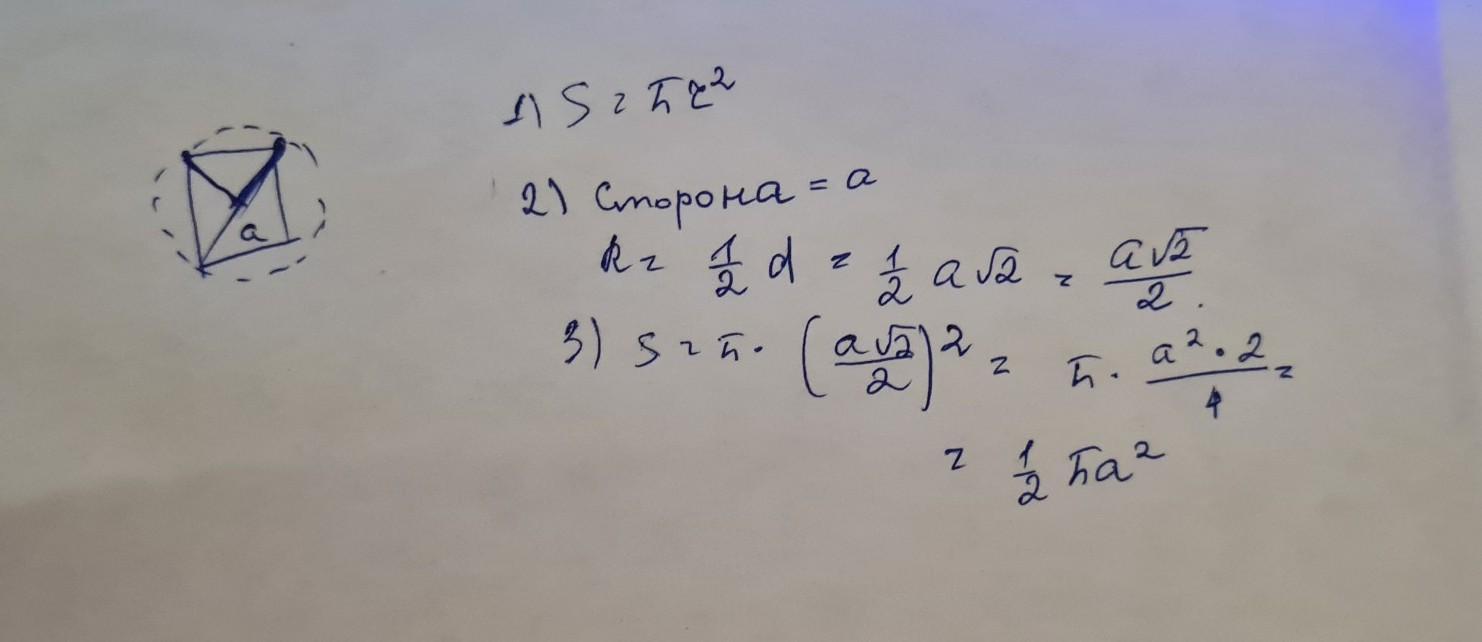 a
1) S = πr²
2) Сторона = a
R = 1/2 d = 1/2 a√2 = a√2/2.
3) S = π · (a√2/2)² = π · a² · 2/4 =
= 1/2 πa²